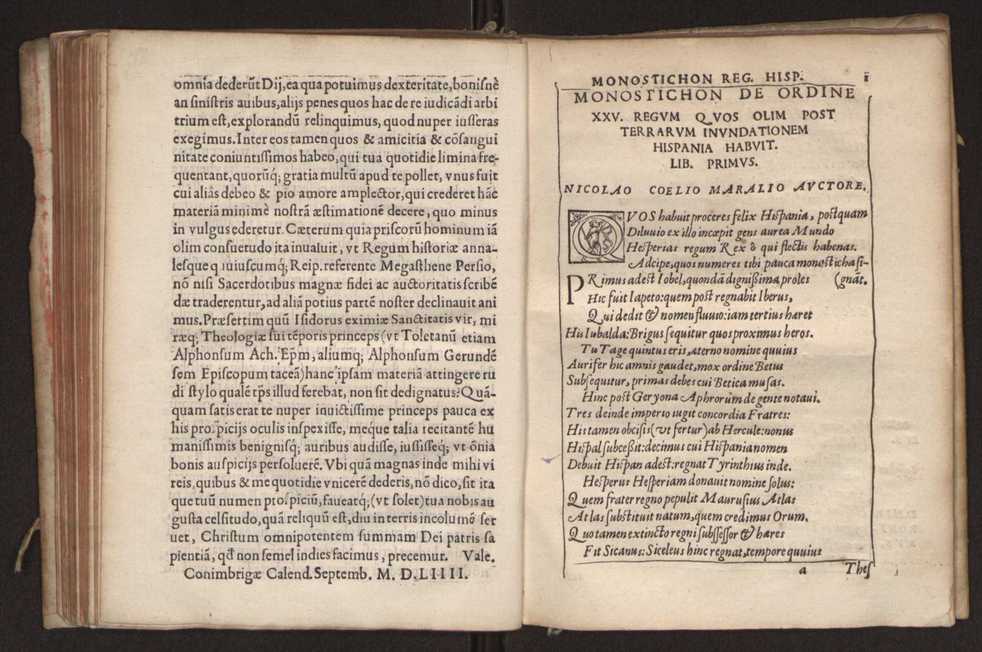 omnia dederũt Dij, ea qua potuimus dexteritate, bonisnè
an sinistris auibus, alijs penes quos hac de re iudicãdi arbi
trium est, explorandũ relinquimus, quod nuper iusseras
exegimus. Inter eos tamen quos & amicitia & cõsangui
nitate coniuntissimos habeo, qui tua quotidie limina fre-
quentant, quorũq; gratia multũ apud te pollet, vnus fuit
cui aliàs debeo & pio amore amplector, qui crederet hãc
materiã minimè nostrã æstimationẽ decere, quo minus
in vulgus ederetur. Cæterum quia priscorũ hominum iã
olim consuetudo ita inualuit, vt Regum historiæ anna-
lesque quiuiscumq; Reip. referente Megasthene Persio,
nõ nisi Sacerdotibus magnæ fidei ac auctoritatis scribẽ
dæ traderentur, ad aliã potius partẽ noster declinauit ani
mus. Præsertim quũ Isidorus eximiæ Sanctitatis vir, mi
ræq; Theologiæ sui tẽporis princeps (vt Toletanũ etiam
Alphonsum Ach. Epm̃, aliumq; Alphonsum Gerundẽ
sem Episcopum taceã) hanc ipsam materiã attingere ru
di stylo qualẽ tp̃s illud ferebat, non sit dedignatus: Quã-
quam satis erat te nuper inuictissime princeps pauca ex
his propicijs oculis inspexisse, meque talia recitantẽ hu
manissimis benignisq; auribus audisse, iussisseq; vt õnia
bonis auspicijs persoluerẽ. Vbi quã magnas inde mihi vi
reis, quibus & me quotidie vnicerẽ dederis, nõ dico, sit ita
que tuũ numen propicium, faueatq; (vt solet) tua nobis au
gusta celsitudo, quã reliquũ est, diu in terris incolumẽ ser
uet, Christum omnipotentem summam Dei patris sa
pientiã, qđ non semel indies facimus, precemur. Vale.
Conimbrigæ Calend. Septemb. M. D. LIIII.
MONOSTICHON REG. HISP. i
MONOSTICHON DE ORDINE
XXV. REGVM QVOS OLIM POST
TERRARVM INVNDATIONEM
HISPANIA HABVIT.
LIB. PRIMVS.
NICOLAO COELIO MARALIO AVCTORE.
QVOS habuit proceres felix Hispania, postquam
Diluuio ex illo incæpit gens aurea Mundo
Hesperias regum Rex ô qui flectis habenas.
Adcipe, quos numeres tibi pauca monosticha si-
PRimus adest Iobel, quondã dignißima proles (gnãt.
Hic fuit Iapeto: quem post regnabit Iberus,
Qui dedit & nomen fluuio: iam tertius hæret
His Iubalda: Brigus sequitur quos proximus heros.
Tu Tage quintus eris, æterno nomine quuius
Aurifer hic amnis gaudet, mox ordine Betus
Subsequitur, primas debes cui Betica musas.
Hinc post Geryona Aphrorum de gente notaui.
Tres deinde imperio iugit concordia Fratres:
His tamen obcisis (vt fertur) ab Hercule: nonus
Hispal subceßit: decimus cui Hispania nomen
Debuit Hispan adest: regnat Tyrinthius inde.
Hesperus Hesperiam donauit nomine solus:
Quem frater regno pepulit Maurusius Atlas
Atlas substituit natum, quem credimus Orum.
Quo tamen extincto regni subssessor & hæres
Fit Sicanus: Siceleus hinc regnat, tempore quuius
a Thes